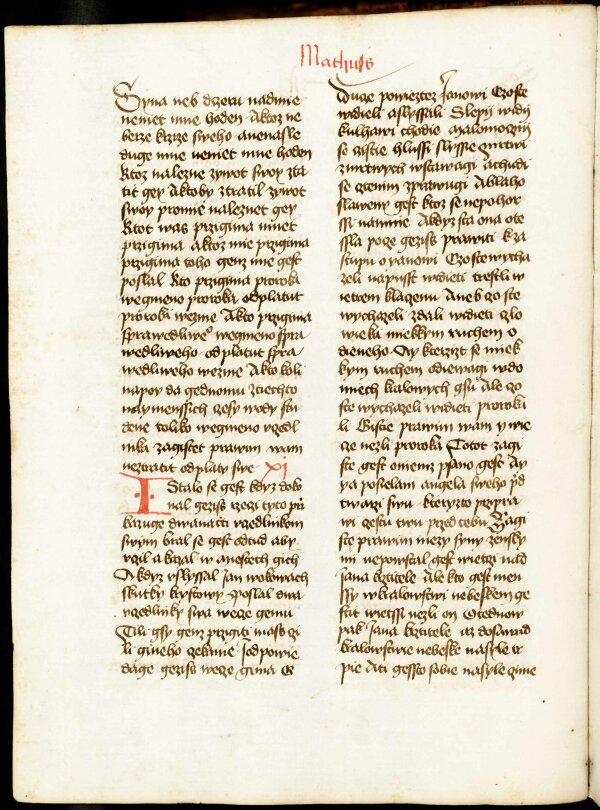 Mathuſs
Syna neb dzeru nadmie
neniet mne hoden Aktoz ne
berze krzize sweho anenasle
duge mne neniet mne hoden
Ktoz nalezne zywot swoy zta
tit gey Aktoby ztratil zywot
swoy promie naleznet gey
Ktot was przigima mnet
przigima Aktoz mie przigima
przigima toho genz mie gest
poslal Kto przigima proroka
wegmeno proroka odplatut
proroka wezme Akto przigima
sprawedliweº wegmeno spra
wedliweho odplatut spra
wedliweho wezme Akto koli
napoy da gednomu ztiechto
naymenssich czesy wody stu
dene toliko wegmeno vczedl
nika zagistet prawim wam
neztratit odplaty swe XI
I Stalo se gest kdyz doko
nal geziss rzeczi tyto przi
kazuge dwanacti vczedlnikom
swym bral se gest odtud aby
vczil a kazal w miestech gich
A kdyz vslyssal Jan wokowach
skutky krystowy poslal dwa
vczedlniky swa wece gemu
Tili gsy genz przigiti mass czi
li gineho czekame Jodpowie
dage geziss wece gima G
duce powieztez Janowi Czoste
widieli aslyssili Slepij widij
kulhawi chodie malomoczni
se czistie hlussi slyssie mrtwi
zmrtwych wstawagi Achudi
se cztenim zprawugi Ablaho
slaweny gest ktoz se nepohor
ssi namnie Akdyz sta ona ote
ssla pocze geziss prawiti k za
stupu o yanowi Czo ste wycha
zeli napusst widieti trestli w
ietrem klaczenu Aneb czo ste
wychazeli zdali widieti czlo
wieka miekkym ruchem o
dieneho Ay kterzizt se miek
kym ruchem odiewagi wdo
miech kralowych gsu Ale czo
ste wychazeli widieti proroka
li Gistie prawim wam y wie
cze nezli proroka Totot zagi
ste gest omenz psano gest Ay
ya posielam angela sweho przed
twarzi swu kteryzto przipra
wi czestu twu przed tebu Zagi
ste prawim mezy syny zensky
mi nepowstal gest wietczi nad
Jana krztitele Ale kto gest men
ssy w kralowstwi nebeskem ge
stit wietssi nezli on Otednow
pak Jana krztitele az dosawad
kralowstwie nebeske nasyle tr
pie Ati gessto sobie nasyle czinie